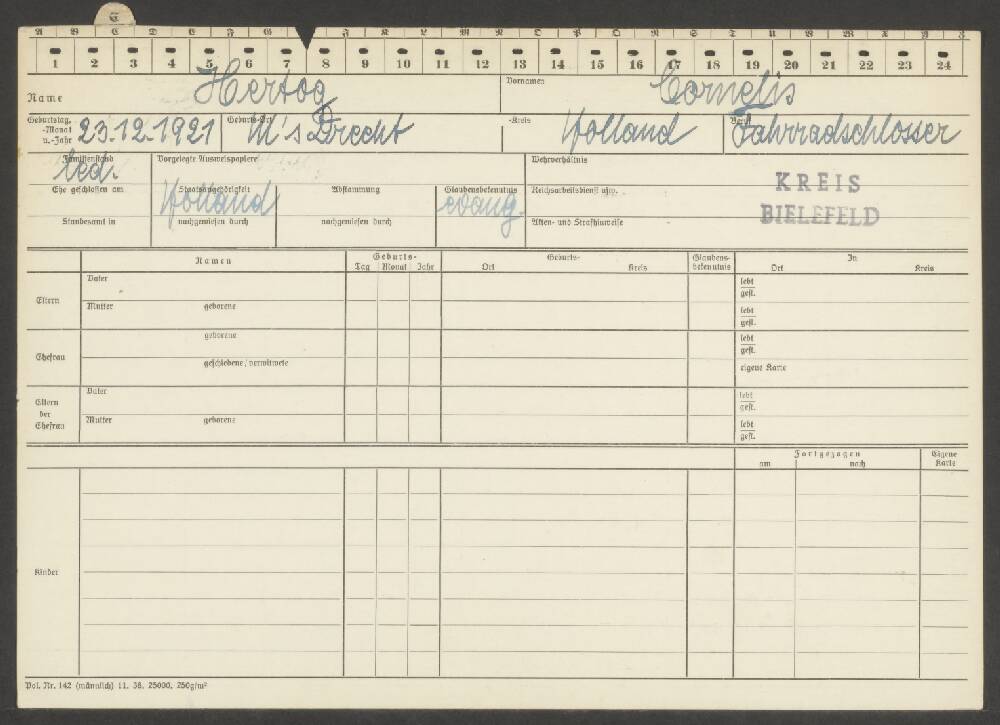 C
A B C D E F G J K L M N O P Q R S T U V W X Y Z
1 2 3 4 5 6 7 8 9 10 11 12 13 14 15 16 17 18 19 20 21 22 23 24
Name Hertog Vornamen Cornelis
Geburtstag, -Monat u.-Jahr 23.12.1921 Geburts-Ort M's Drecht -Kreis Holland Beruf Fahrradschlosser
Familienstand led. Vorgelegte Ausweispapiere Wehrverhältnis
Ehe geschlossen am Staatsangehörigkeit Holland Abstammung Glaubensbekenntnis evang. Reichsarbeitsdienst usw. KREIS
BIELEFELD
Standesamt in nachgewiesen durch nachgewiesen durch Akten- und Strafhinweise
Namen Geburts- Geburts- Glaubens- In
Tag Monat Jahr Ort Kreis bekenntnis Ort Kreis
Eltern Vater lebt
gest.
Mutter geborene lebt
gest.
Ehefrau geborene lebt
gest.
geschiedene/verwitwete eigene Karte
Eltern der Ehefrau Vater lebt
gest.
Mutter geborene lebt
gest.
Fortgezogen Eigene
am nach Karte
Kinder
Pol. Nr. 142 (männlich) 11. 38. 25000. 250g/m²